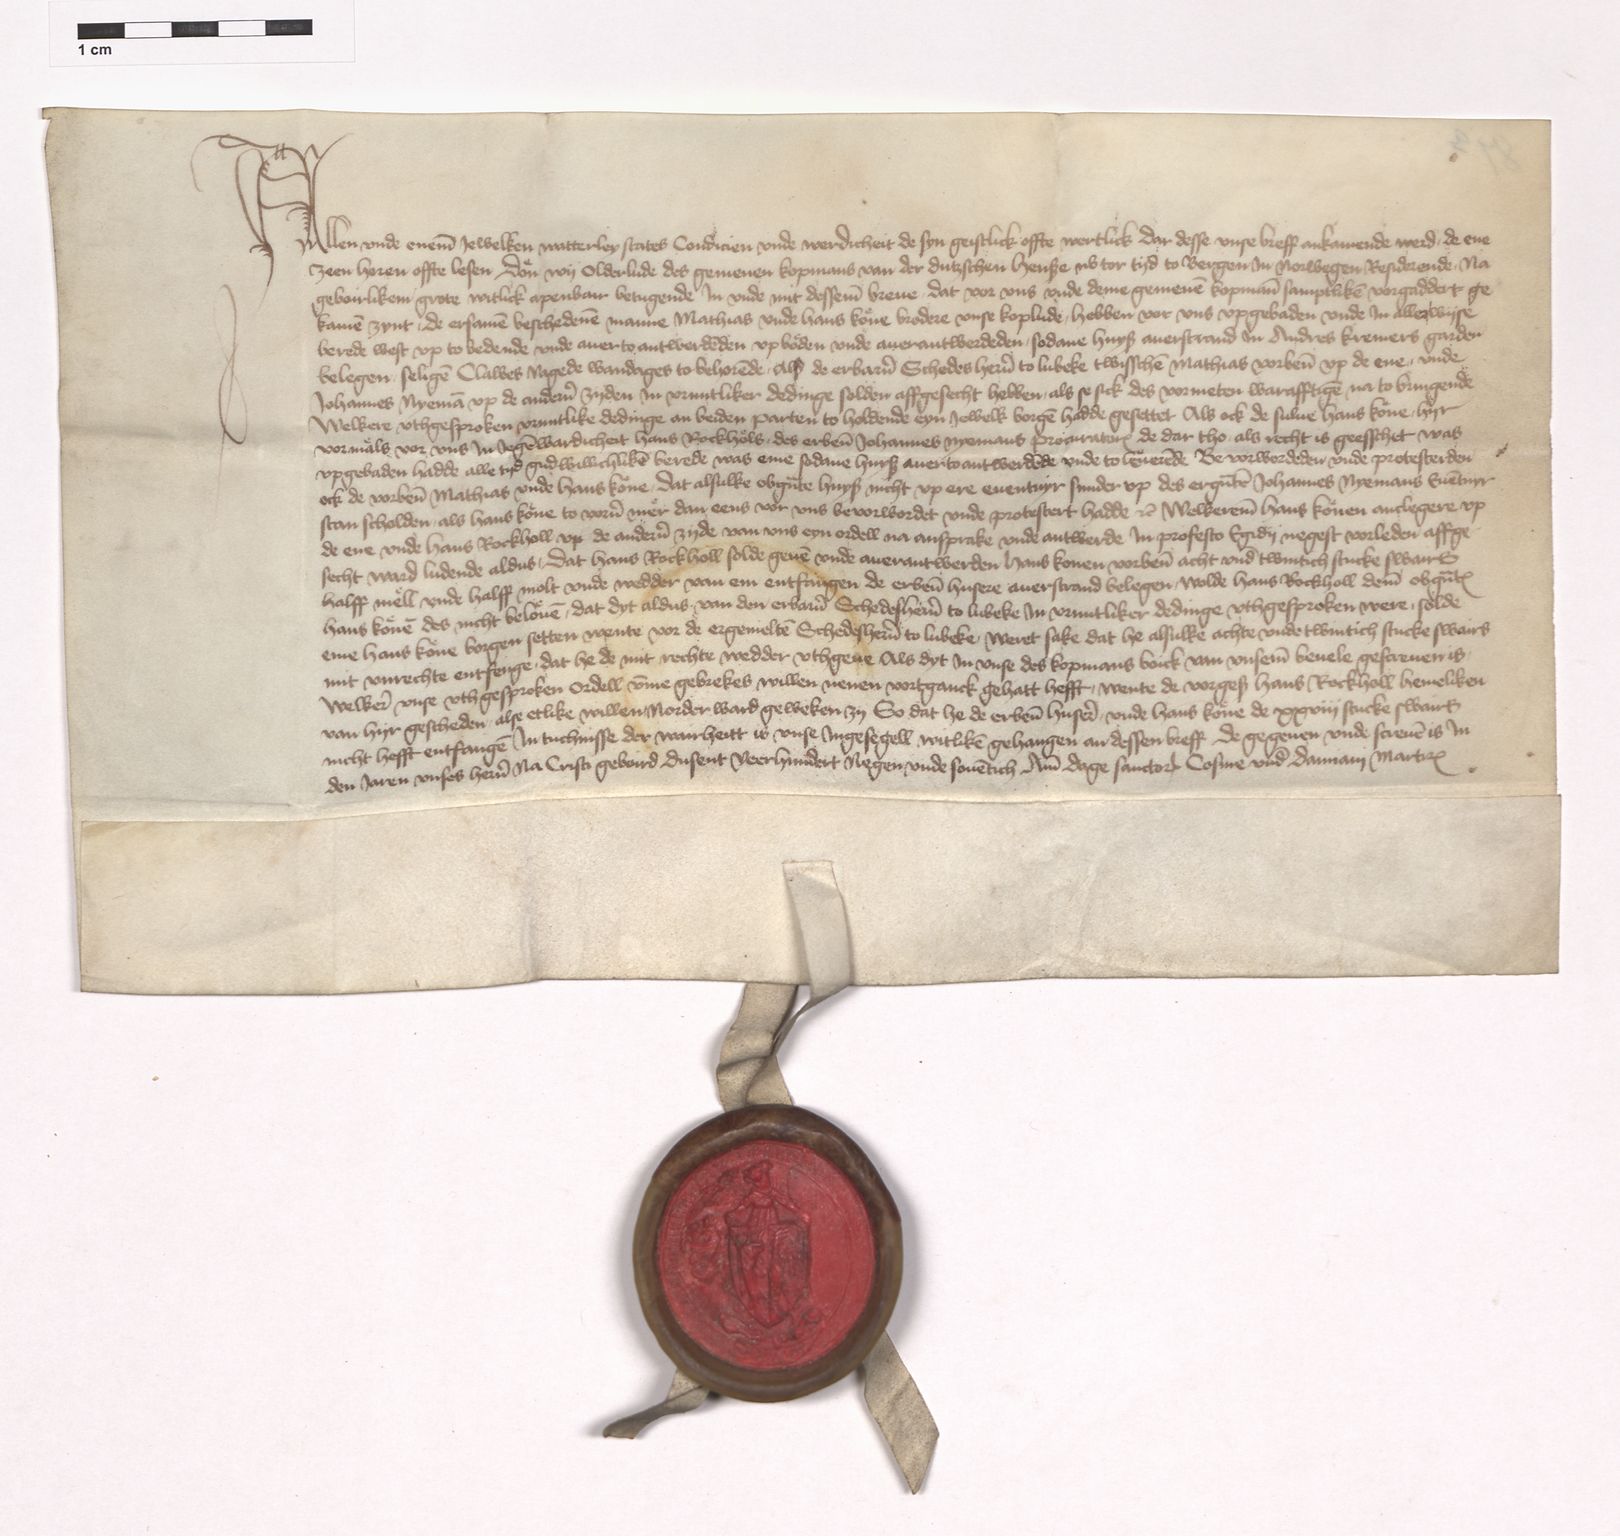 1 cm
Allen vnde enem̄ Jewelken watterley states Condicien vnde werdicheit de syn geistlick offte wertlick Dar desse vnse breff ankamende werd, de ene
zeen horen offte lesen Don wij Olderlude des gemenen kopmans van der dutzschen hensze nv tor tijd to Bergen In Norwegen Residerende, Na
geboirlikem grote witlick apenbair betugende In vnde mit dessem̄ breue, dat vor vns vnde deme gemenē kopman̄ samptlikē vorgaddert ge
kamē zynt, de ersamē beschedenē manne Mathias vnde hans kone brodere vnse koplude, hebben vor vns vpgebaden vnde In allerwijse
berede west vp to bedende vnde auerto antwerdēden vpbeden vnde auerantwerdeden, sodane huysz auerstrand In Andres kremers garden
belegen, seligē Clawes Nagede wandages to behorēde, Als de erbarn̄ Schedes hern̄ to lubeke twisschē Mathias vorben̄ vp de ene, vnde
Johannes Nyemā vp de andern̄ zijden In vruntliker dedinge solden affgesecht hebben, als se sick des vormeten warafftigē na to bringende
Welkere vthgesproken vruntlike dedinge an beiden parten to holdende eyn Jowelk borgē hadde gesettet Als ock de sulue hans kone, hijr
vormals vor vns In Jegēwardicheit hans Rockhols, des erben̄ Johannes nyemans procurator, de dar tho, als recht is geesschet was
vpgebaden hadde alle tijd gudwillichlikē berede was eme sodane huysz auertoantwerdēde vnde to leuerēde Bevorwordeden vnde protesterden
ock de vorben̄ Mathias vnde hans kone, Dat alsulke obgūte huysz nicht vp ere euentuyr sunder vp des ergūtē Johannes Nyemans Euētuyr
stan scholden, als hans kone to vorn̄ mer dan eens vor vns bevorwordet vnde protestert hadde rc̄ Welkerem̄ hans konen anclegere vp
de ene vnde hans Rockholl vp de andern̄ zijde van vns eyn ordell na ansprake vnde antwerde In profesto Egidij negest vorleden affge
secht ward ludende aldus, Dat hans Rockholl solde geuē vnde auerantwerden hans konen vorben̄ acht vnd twintich stucke swairs
halff mell vnde halff molt vnde wedder van em entfangen de erben̄ husere auerstrand belegen, wolde hans Rockholl dem̄ obgūtē
hans konē des nicht belouē, dat dyt aldus van den erbarn̄ Schedeshern̄ to lubeke In vruntliker dedinge vthgesproken were, solde
eme hans kone borgen setten wente vor de ergemeltē Schedeshern̄ to lubeke, weret sake dat he alsulke achte vnde twintich stucke swairs
mit vnrechte entfenge, dat he de mit rechte wedder vthgeue Als dyt In vnse des kopmans boick van vnsem̄ beuele gescreuen is,
welker vnse vthgesproken Ordell vm̄e gebrekes willen nenen vortganck gehatt hefft, wente de vorgesz hans Rockholl hemeliken
van hijr gescheden, alse etlike willen Norder ward geweken zij So dat he de erben̄ huser, vnde hans kone de xxviij stucke swairs
nicht hefft entfangē In tuchnisse der warheitt is vnse Ingesegell witlikē gehangen an dessen breff De gegeuen vnde screuē is In
den Jaren vnses hern̄ Na Cristi gebord Dusent Veerhundert Negen vnde souētich Am̄ dage sanctor Cosme vnd̄ Damiani Martir